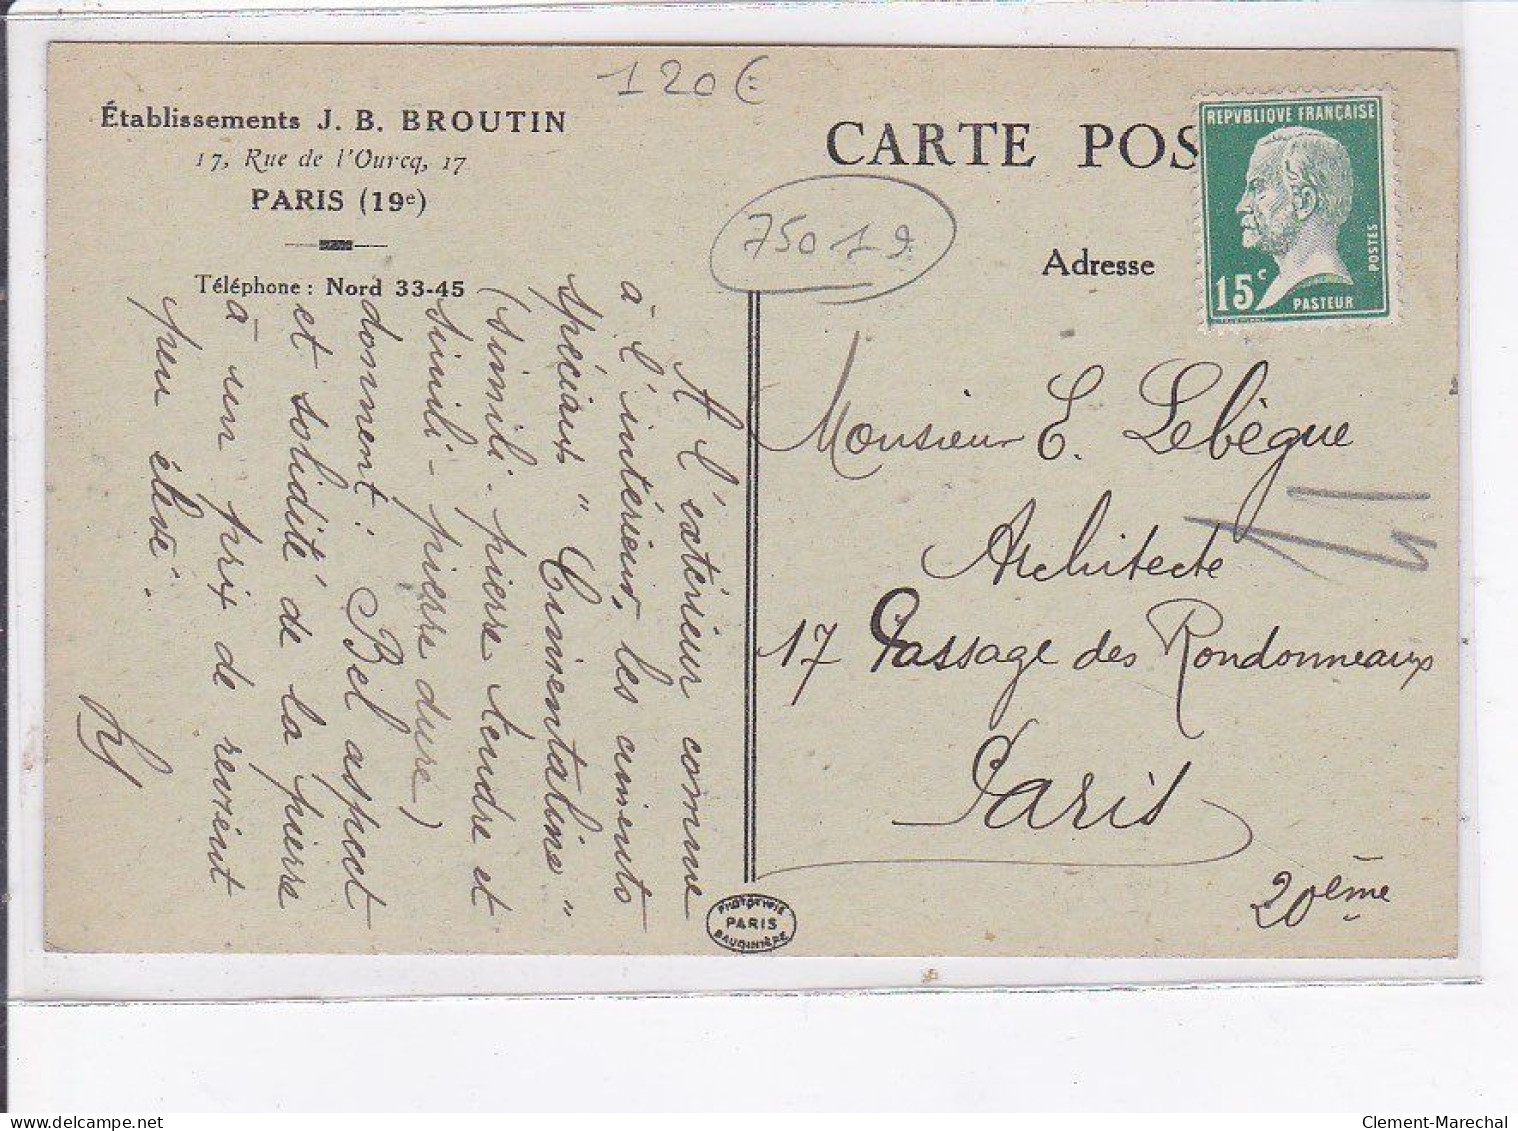 120€
Établissements J. B. BROUTIN
17, Rue de l'Ourcq, 17
PARIS (19e)
Téléphone : Nord 33-45
A l'extérieur comme
à l'intérieur, les ciments
spéciaux "Cimentaline"
(simili-pierre tendre et
simili-pierre dure)
donnent : Bel aspect
et solidité de la pierre
à un prix de revient
peu élevé.
75019
CARTE POS
REPVBLIQVE FRANÇAISE
POSTES
15c
PASTEUR
Adresse
Monsieur E. Lebègue
Architecte
17 Passage des Rondonneaux
Paris
20ème
PHOTOTYPIE
PARIS
BAUDINIÈRE
delcampe.net
Clement-Marechal